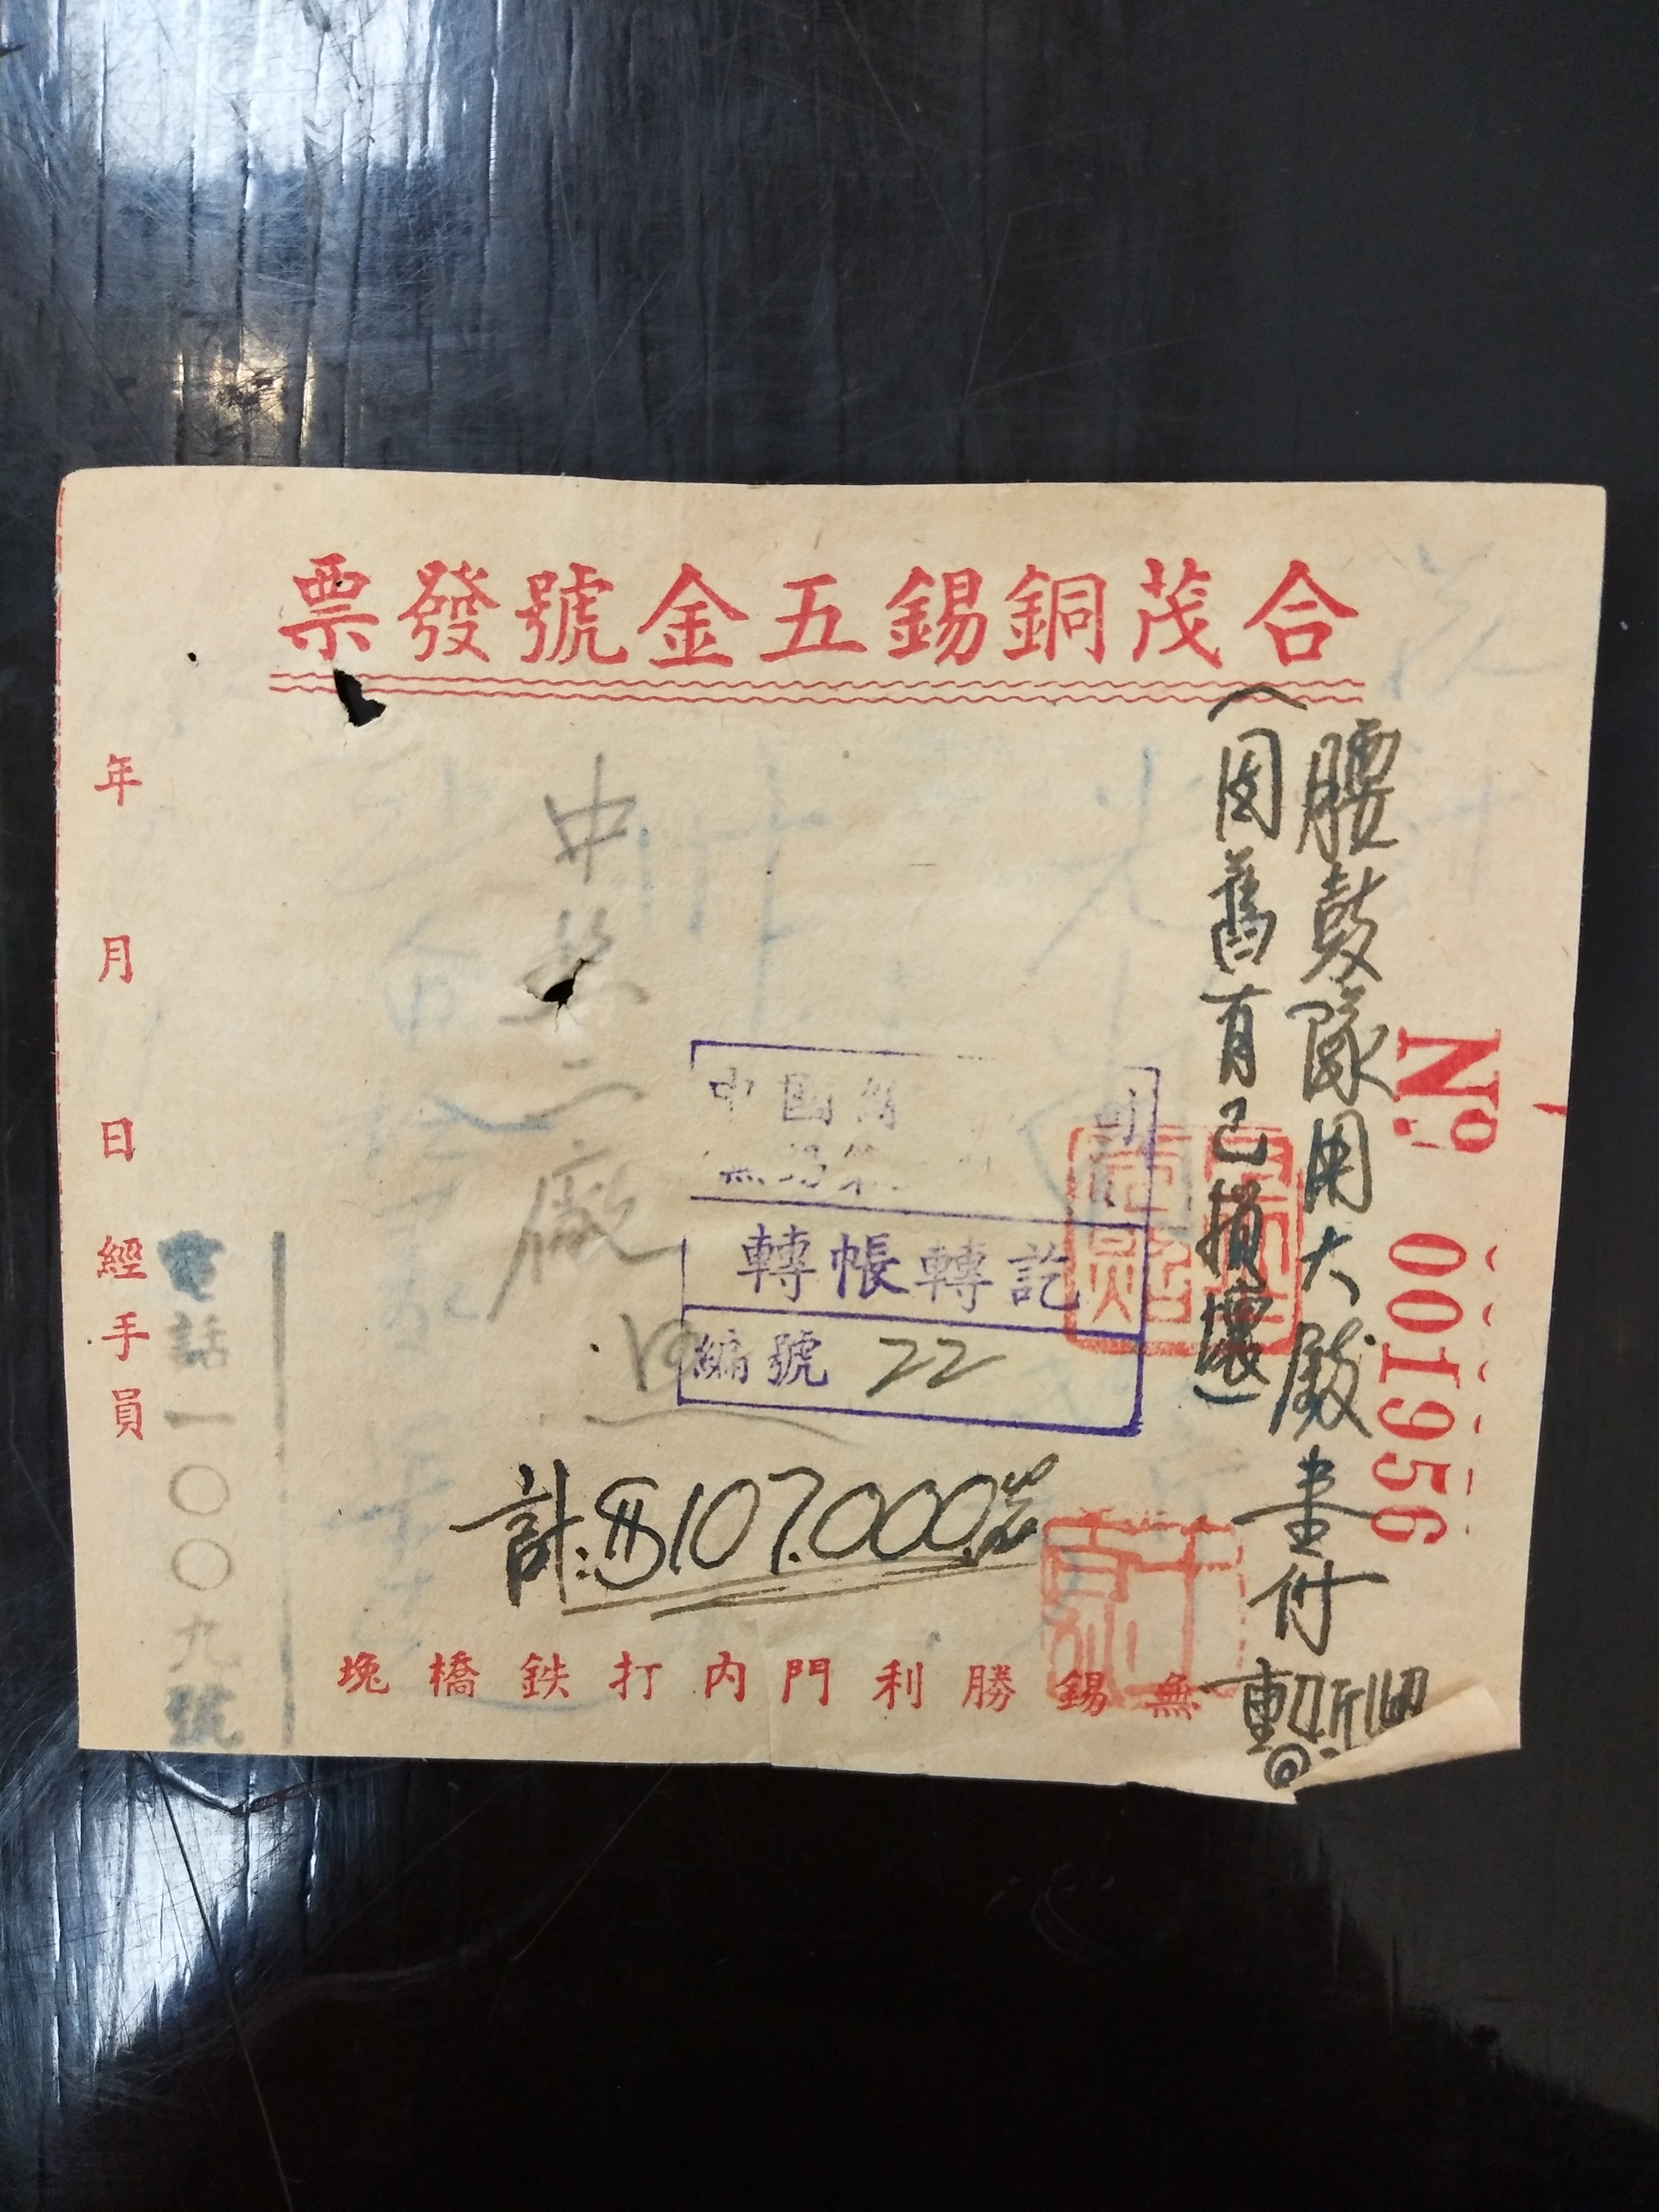 合茂銅錫五金號發票
№ 001956
腰鼓隊用大鈸壹付
(因舊有已損壞)
中蚕二廠
中國
轉帳轉訖
編號 22
計:$107.000.
無錫勝利門內打鉄橋堍
電話一〇〇九號
年 月 日 經手員